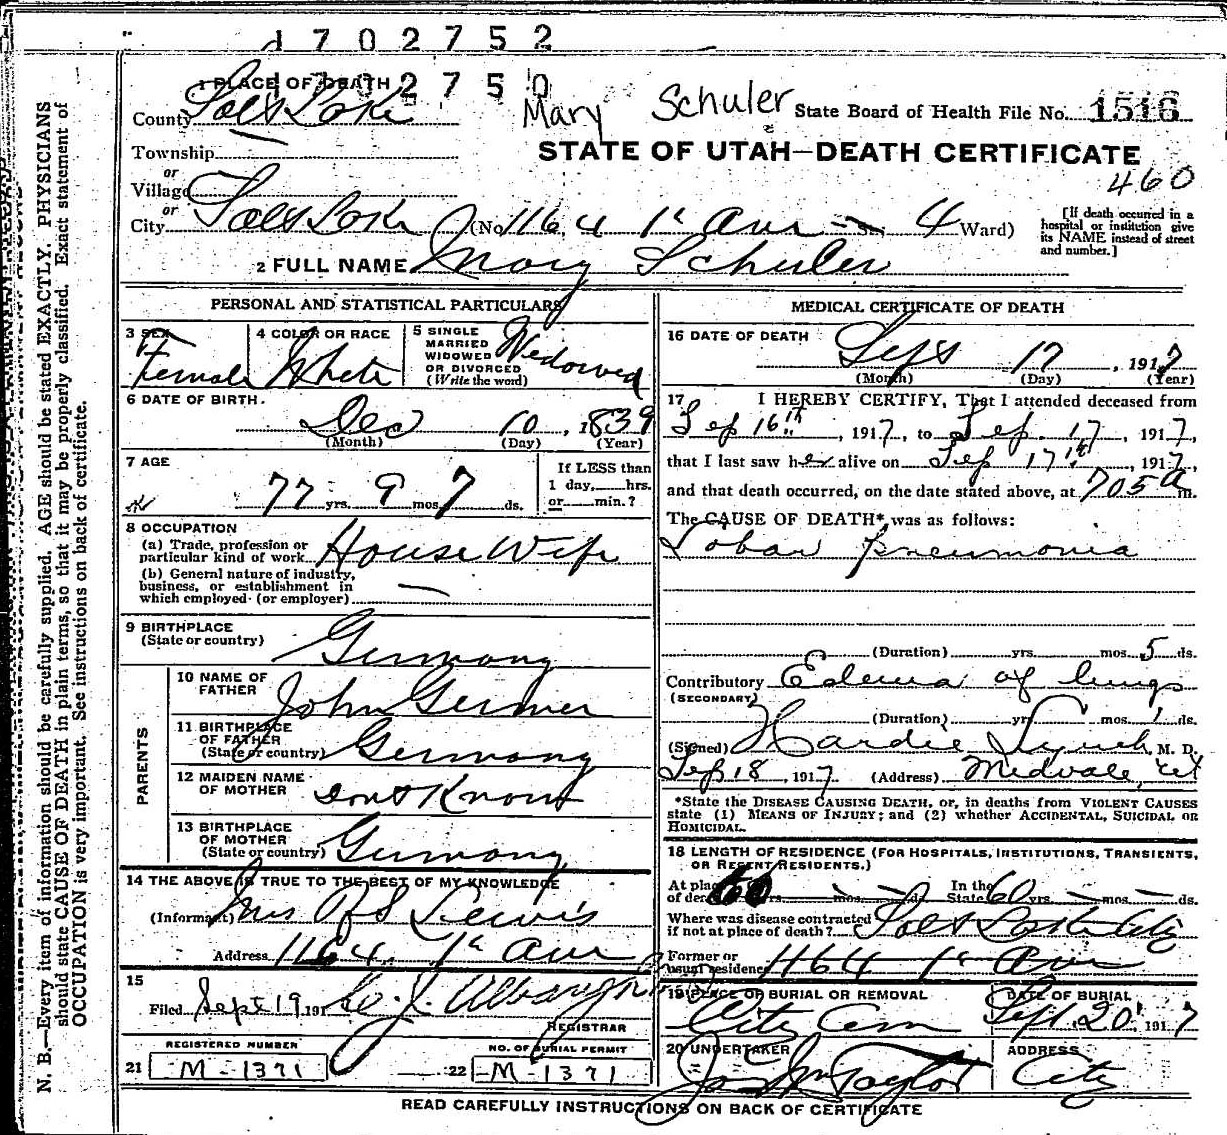 d 7 0 2 7 5 2
1 PLACE OF DEATH 1 7 0 2 7 5 0
County Salt Lake Mary Schuler State Board of Health File No. 1516
Township
STATE OF UTAH—DEATH CERTIFICATE
or
Village
460
or
City Salt Lake (No. 1164 1st Ave St.; 4 Ward)
[If death occurred in a hospital or institution give its NAME instead of street and number.]
2 FULL NAME Mary Schuler
PERSONAL AND STATISTICAL PARTICULARS
3 SEX Female
4 COLOR OR RACE White
5 SINGLE MARRIED WIDOWED OR DIVORCED (Write the word) Widowed
6 DATE OF BIRTH.
Dec 10, 1839
(Month) (Day) (Year)
7 AGE
77 yrs. 9 mos. 7 ds.
If LESS than 1 day, hrs. or min.?
8 OCCUPATION
(a) Trade, profession or particular kind of work House Wife
(b) General nature of industry, business, or establishment in which employed (or employer) —
9 BIRTHPLACE
(State or country) Germany
PARENTS
10 NAME OF FATHER John Germer
11 BIRTHPLACE OF FATHER (State or country) Germany
12 MAIDEN NAME OF MOTHER Dont Know
13 BIRTHPLACE OF MOTHER (State or country) Germany
14 THE ABOVE IS TRUE TO THE BEST OF MY KNOWLEDGE
(Informant) Mrs R S Lewis
Address 1164 1st Ave
15
Filed Sept 19 191
REGISTRAR
REGISTERED NUMBER
21 M-1371
NO. OF BURIAL PERMIT
22 M-1371
MEDICAL CERTIFICATE OF DEATH
16 DATE OF DEATH Sep 17, 1917
(Month) (Day) (Year)
17 I HEREBY CERTIFY, That I attended deceased from
Sep 16th, 1917, to Sep. 17, 1917,
that I last saw her alive on Sep 17th, 1917,
and that death occurred, on the date stated above, at 705 a m.
The CAUSE OF DEATH* was as follows:
Lobar Pneumonia
(Duration) yrs. mos. 5 ds.
Contributory Edema of lungs
(SECONDARY)
(Duration) yrs mos. 1 ds.
(Signed) Hardie Lynch, M. D.
Sep 18, 1917. (Address) Midvale, Ut
*State the DISEASE CAUSING DEATH, or, in deaths from VIOLENT CAUSES
state (1) MEANS OF INJURY; and (2) whether ACCIDENTAL, SUICIDAL OR
HOMICIDAL.
18 LENGTH OF RESIDENCE (FOR HOSPITALS, INSTITUTIONS, TRANSIENTS,
OR RECENT RESIDENTS.)
At place of death 60 yrs. — mos. — ds. In the State 60 yrs. — mos. — ds.
Where was disease contracted if not at place of death? Salt Lake City
Former or usual residence 1164 1st Ave
19 PLACE OF BURIAL OR REMOVAL
City Cem
DATE OF BURIAL
Sept. 20, 1917
20 UNDERTAKER
Jos Wm Taylor
ADDRESS
City
READ CAREFULLY INSTRUCTIONS ON BACK OF CERTIFICATE
N. B.—Every item of information should be carefully supplied. AGE should be stated EXACTLY. PHYSICIANS
should state CAUSE OF DEATH in plain terms, so that it may be properly classified. Exact statement of
OCCUPATION is very important. See instructions on back of certificate.